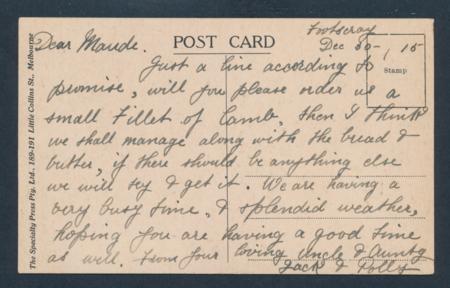 Footscray
Dec 30-, 15
Dear Maude.
POST CARD
Stamp
Just a line according to
promise, will you please order us a
small Fillet of Lamb, then I think
we shall manage along with the bread &
butter, if there should be anything else
we will try & get it. We are having a
very busy time, & splendid weather,
hoping you are having a good time
as well. From your loving Uncle & Aunty
Jack & Polly
The Specialty Press Pty. Ltd., 189-191 Little Collins St., Melbourne